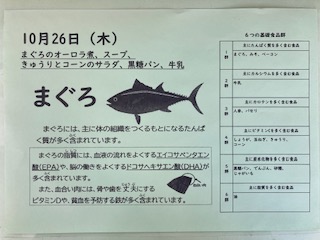 10月26日（木）
まぐろのオーロラ煮、スープ、
きゅうりとコーンのサラダ、黒糖パン、牛乳
まぐろ
まぐろには、主に体の組織をつくるもとになるたんぱ
く質が多く含まれています。
まぐろの脂質には、血液の流れをよくするエイコサペンタエン
酸(EPA)や、脳の働きをよくするドコサヘキサエン酸(DHA)が
多く含まれています。
また、血合い肉には、骨や歯を丈夫にする
ビタミンDや、貧血を予防する鉄が多く含まれています。
6つの基礎食品群
主にたんぱく質を多く含む食品
1群
まぐろ、みそ、ベーコン
主にカルシウムを多く含む食品
2群
牛乳
主にカロテンを多く含む食品
3群
人参、パセリ
主にビタミンCを多く含む食品
4群
しょうが、玉ねぎ、きゅうり、
コーン
主に炭水化物を多く含む食品
5群
黒糖パン、でんぷん、砂糖、
じゃがいも
主に脂質を多く含む食品
6群
油